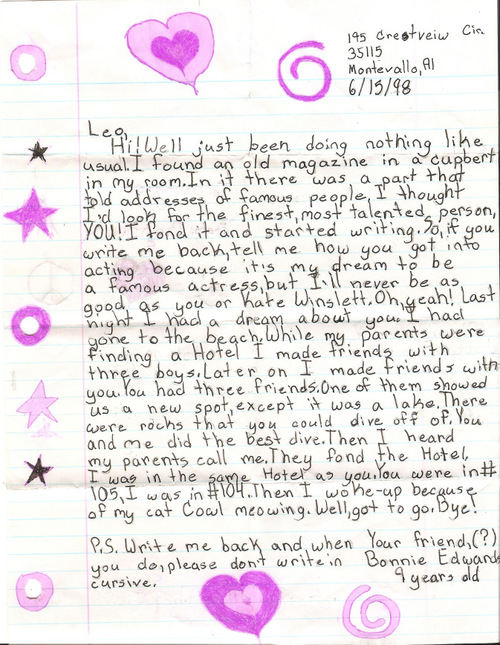 195 Crestveiw Cir.
35115
Montevallo, Al
6/15/98
Leo,
Hi! Well just been doing nothing like
usual. I found an old magazine in a cupbert
in my room. In it there was a part that
told addresses of famous people, I thought
I'd look for the finest, most talented, person,
YOU! I fond it and started writing. So, if you
write me back, tell me how you got into
acting because it's my dream to be
a famous actress, but I'll never be as
good, as you or Kate Winslett. Oh, yeah! Last
night I had a dream about you. I had
gone to the beach. While my parents were
finding a Hotel I made friends with
three boys. Later on I made friends with
you. You had three friends. One of them showed
us a new spot, except it was a lake. There
were rocks that you could dive off of. You
and me did the best dive. Then I heard
my parents call me. They fond the Hotel,
I was in the same Hotel as you. You were in #
105, I was in #104. Then I woke-up because
of my cat Cowl meowing. Well, got to go. Bye!
P.S. Write me back and, when
you do, please don't write in
cursive.
Your friend, (?)
Bonnie Edwards
9 years old